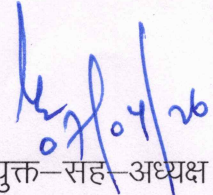 07/04/26
युक्त–सह–अध्यक्ष